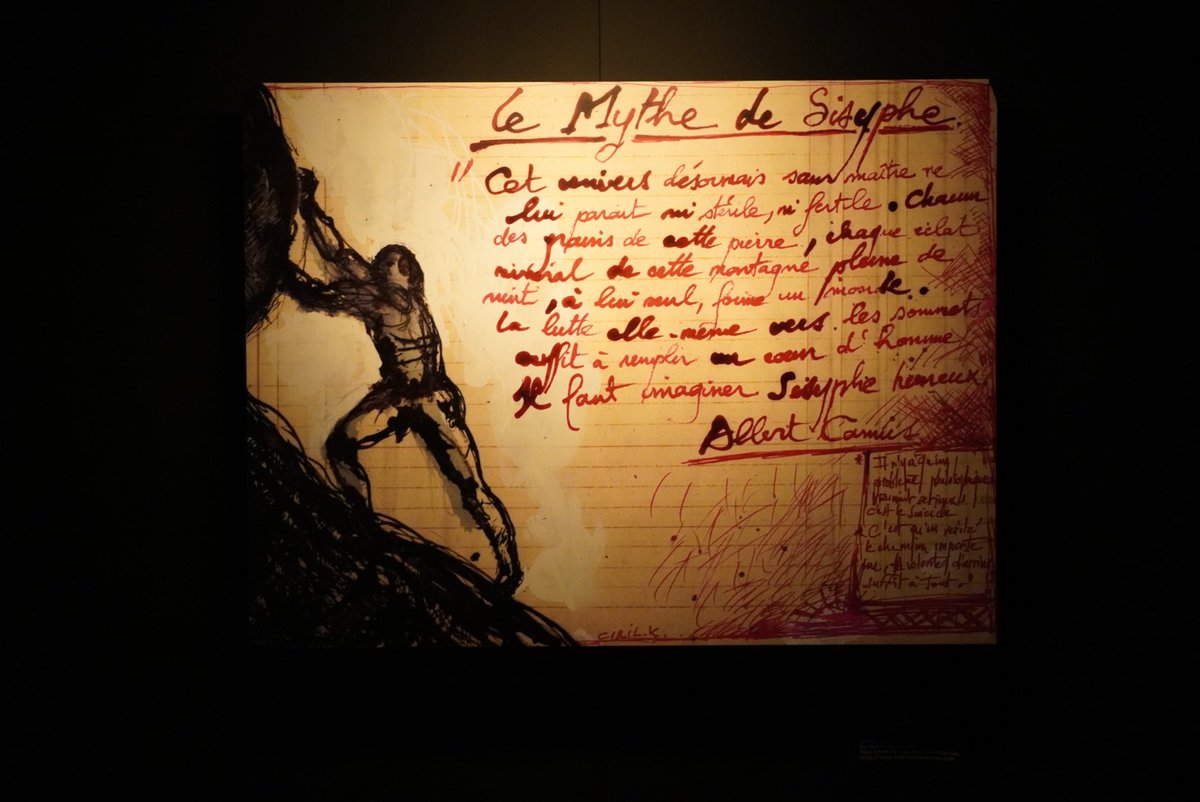 Le Mythe de Sisyphe.
" Cet univers désormais sans maître ne
lui parait ni stérile, ni fertile. Chacun
des grains de cette pierre, chaque éclat
minéral de cette montagne pleine de
nuit, à lui seul, forme un monde.
La lutte elle-même vers les sommets
suffit à remplir un cœur d'homme
Il faut imaginer Sisyphe heureux."
Albert Camus
* Il n'y a qu'un
problème philosophique
vraiment sérieux
c'est le suicide
* C'est qu'en vérité
le chemin importe
peu, la volonté d'arriver
suffit à tout."
CIRIL.K.